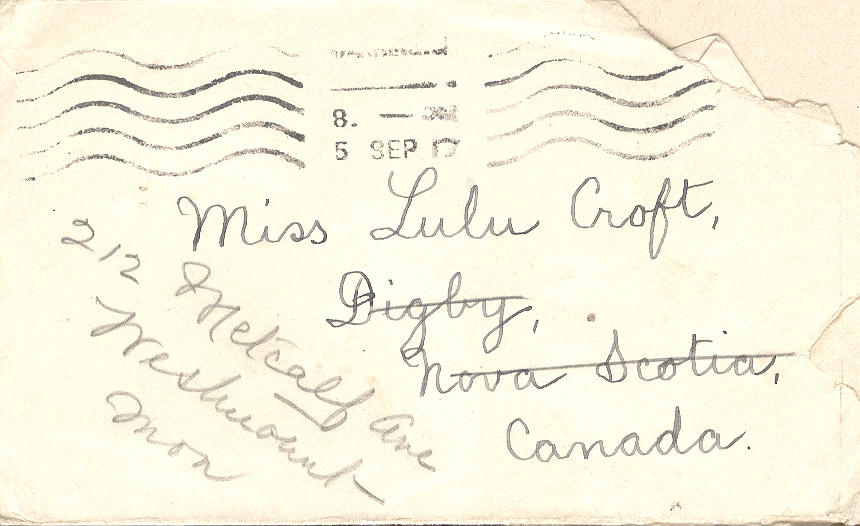 8. —
5 SEP 17
Miss Lulu Croft,
Digby,
Nova Scotia,
Canada.
212 Metcalf Ave
Westmount
Mon